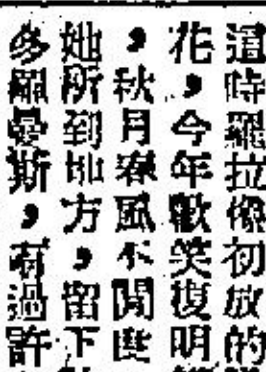 這時羅拉像初放的
花，今年歡笑復明
，秋月春風不閒度
她所到地方，留下
多羅曼斯，有過許